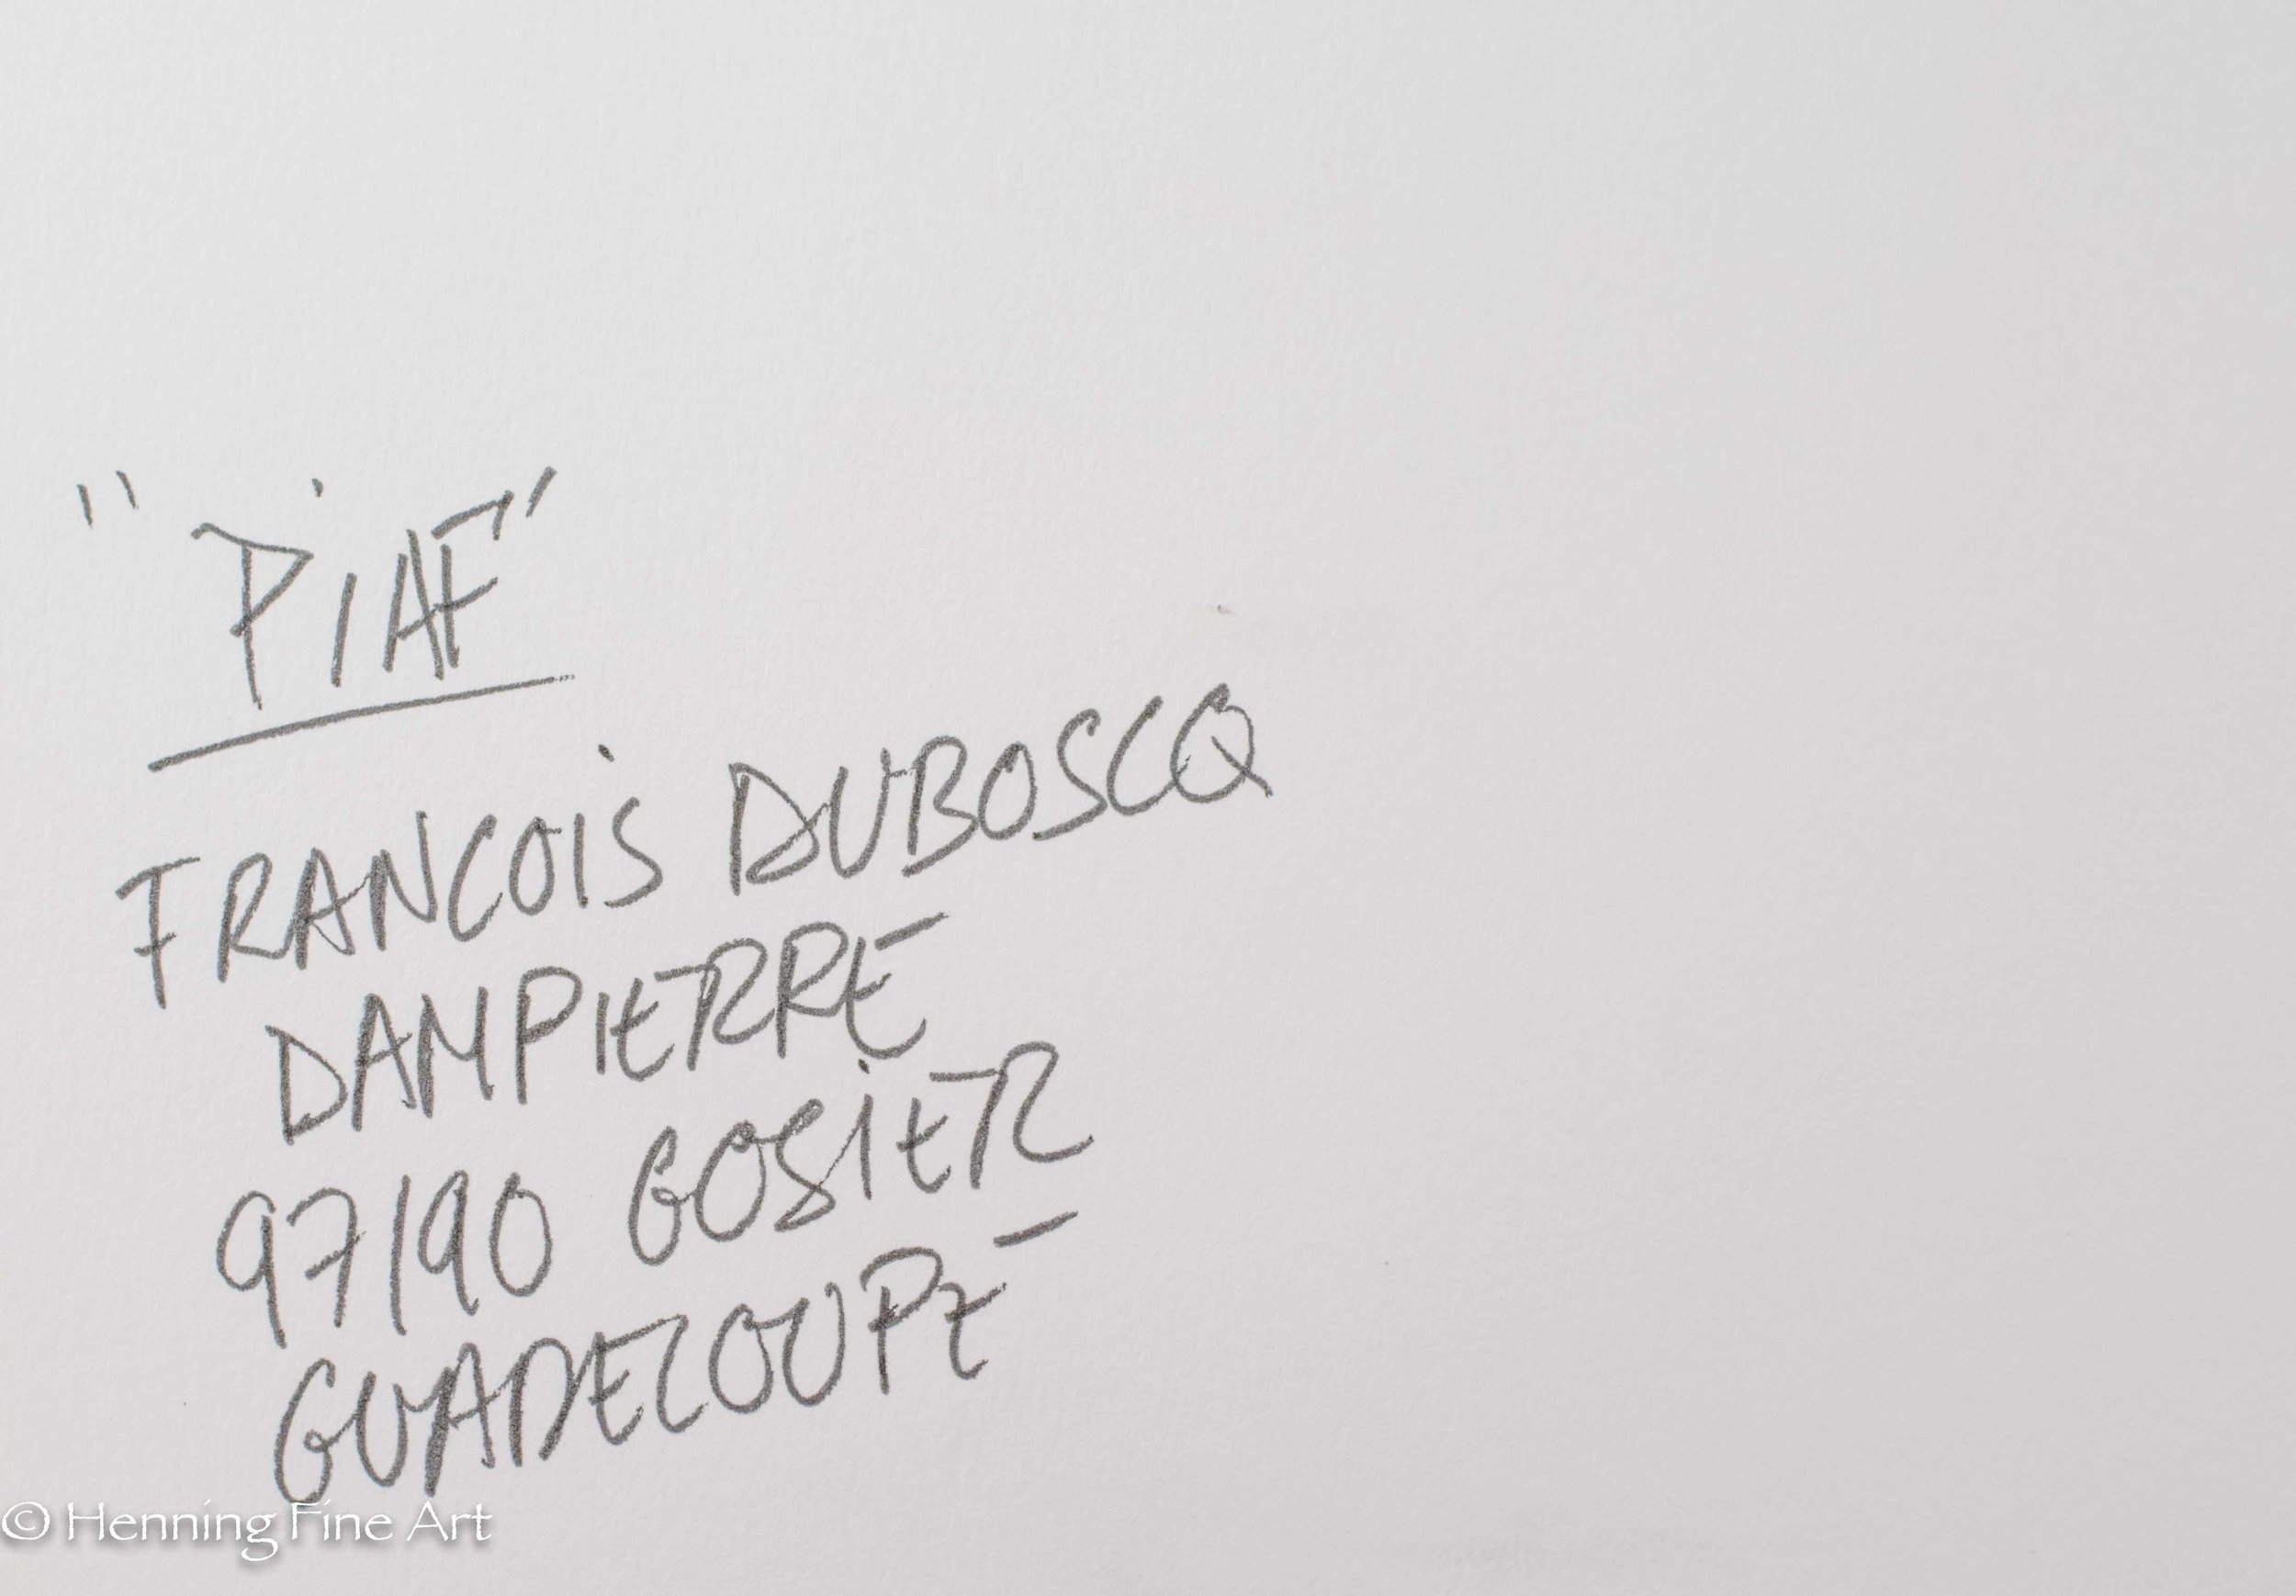 "PiAF"
FRANCOiS DUBOSCQ
DAMPIERRE
97190 GOSiER
GUADELOUPE
© Henning Fine Art